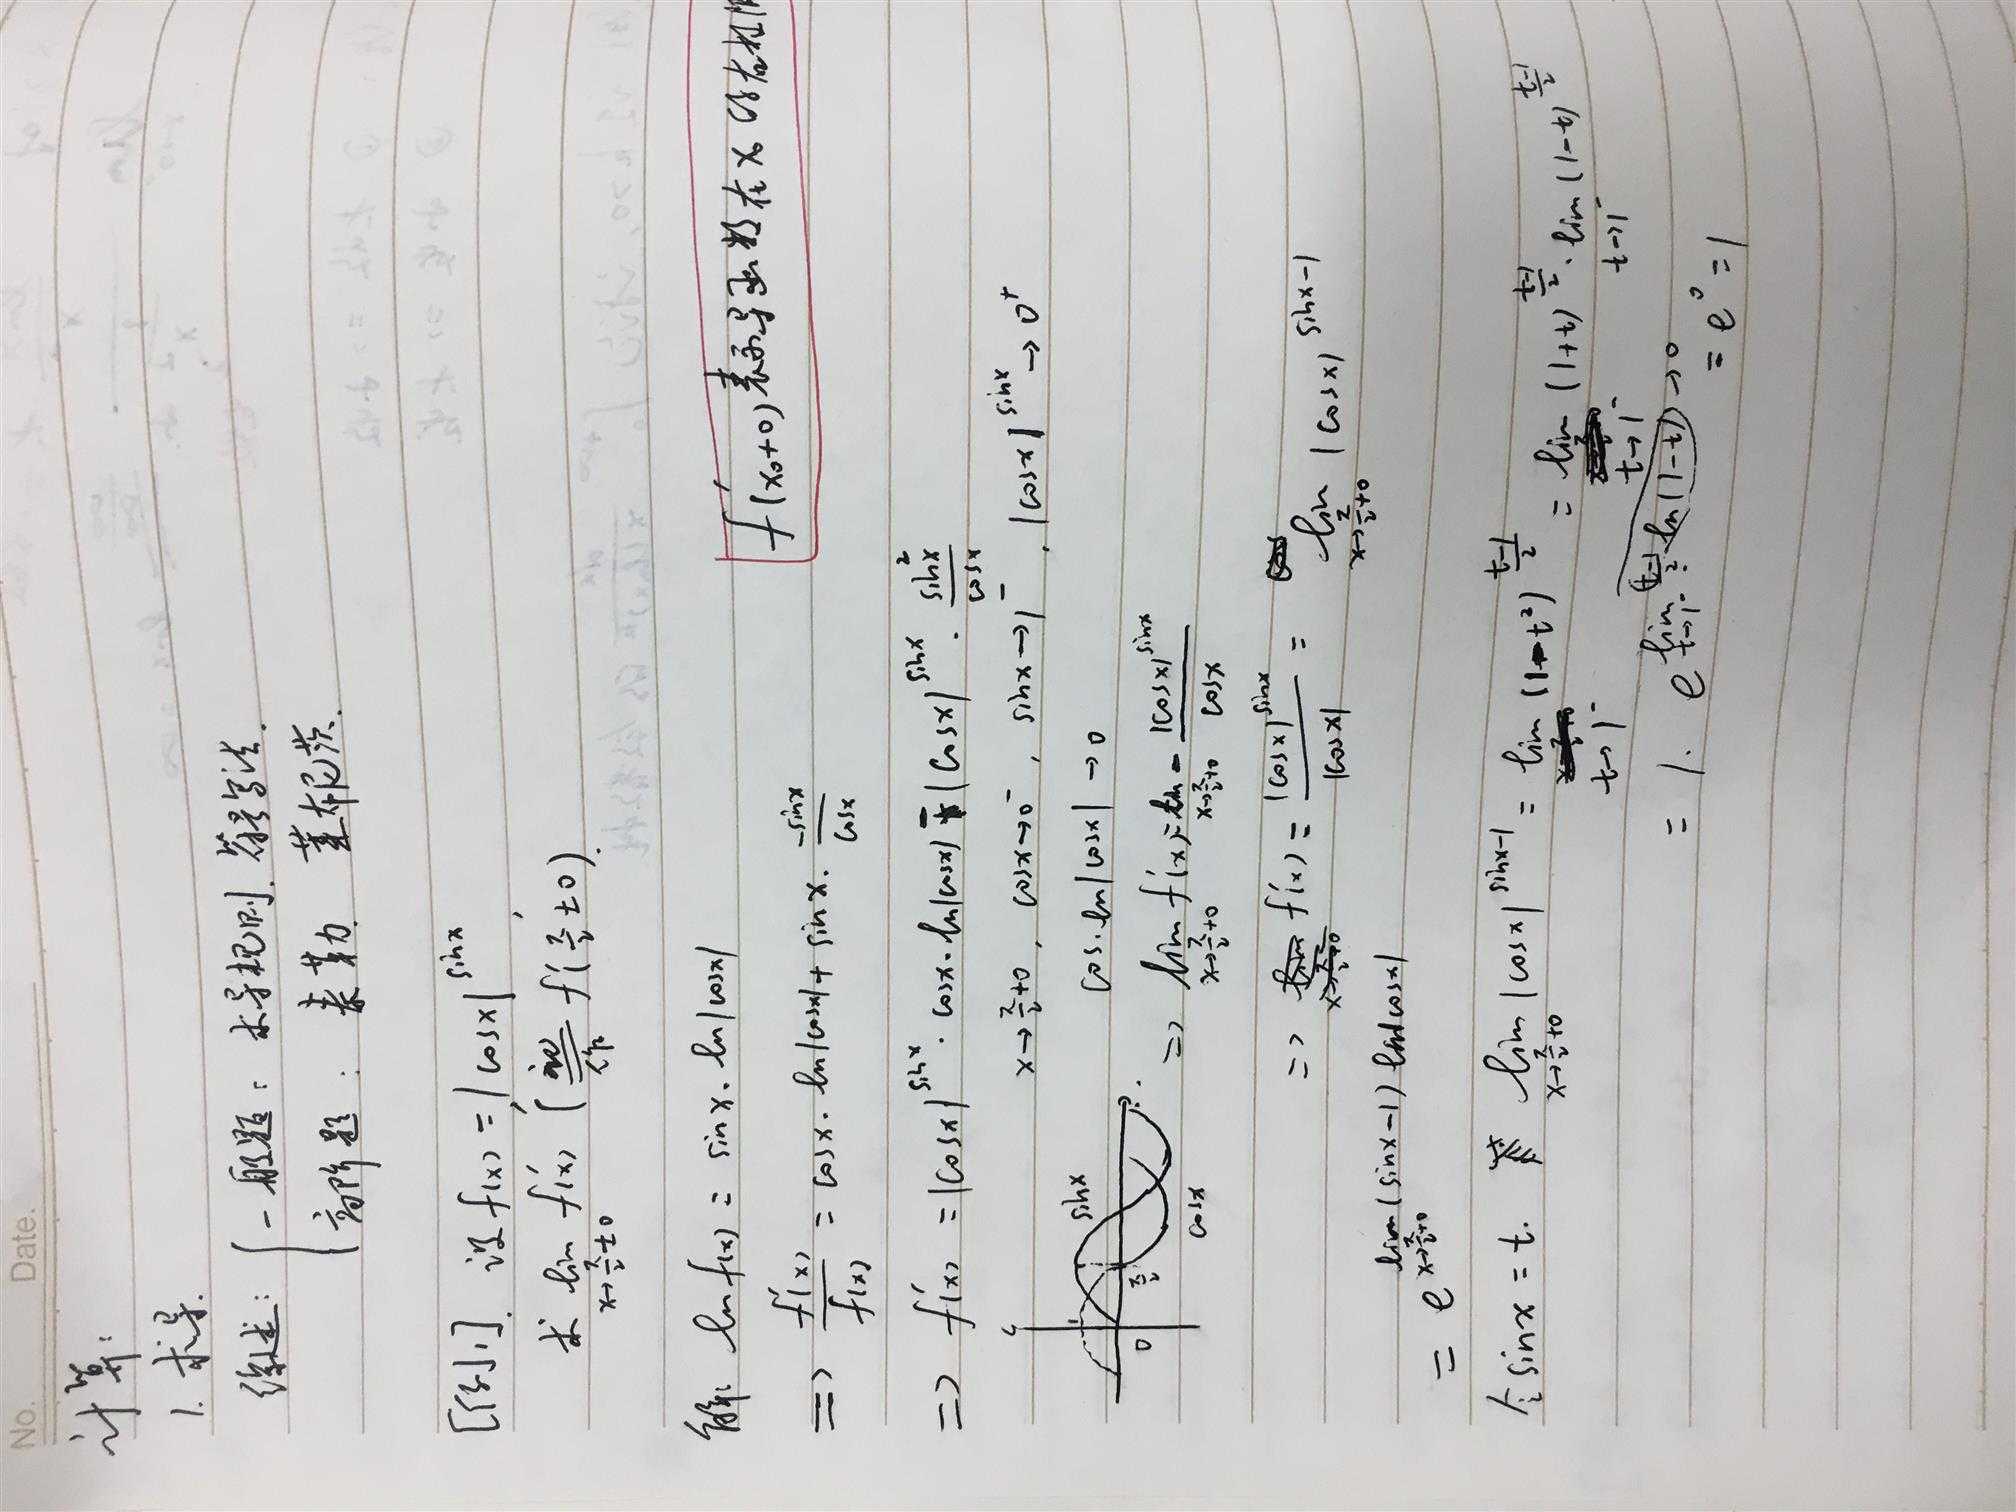 No.
Date.
计算:
1. 求导.
综述: { 一般题: 求导规则. 符号法.
高阶题: 泰勒 莱布尼茨.
[例1]. 设 f(x) = |cosx|^sinx
求 lim x→π/2±0 f'(x) (记作 f'(π/2±0)).
f'(x₀+0)表示导函数在x₀的右极限
解: ln f(x) = sinx · ln|cosx|
=> f'(x)/f(x) = cosx · ln|cosx| + sinx · -sinx/cosx
=> f'(x) = |cosx|^sinx · cosx · ln|cosx| - |cosx|^sinx · sin²x/cosx
x→π/2+0, cosx→0⁻, sinx→1⁻, |cosx|^sinx→0⁺
cos·ln|cosx|→0
sinx
cosx
0
π/2
=> lim x→π/2+0 f'(x) = lim x→π/2+0 - |cosx|^sinx/cosx
=> f'(x) = |cosx|^sinx/|cosx| = lim x→π/2+0 |cosx|^sinx-1
= e^lim x→π/2+0 (sinx-1) ln|cosx|
令 sinx = t. lim x→π/2+0 |cosx|^sinx-1 = lim t→1⁻ (1-t²)^t-1/2 = lim t→1⁻ (1+t)^t-1/2 · lim t→1⁻ (1-t)^t-1/2
= 1 · e^lim t→1⁻ t-1/2 · ln(1-t) →0
= e⁰ = 1